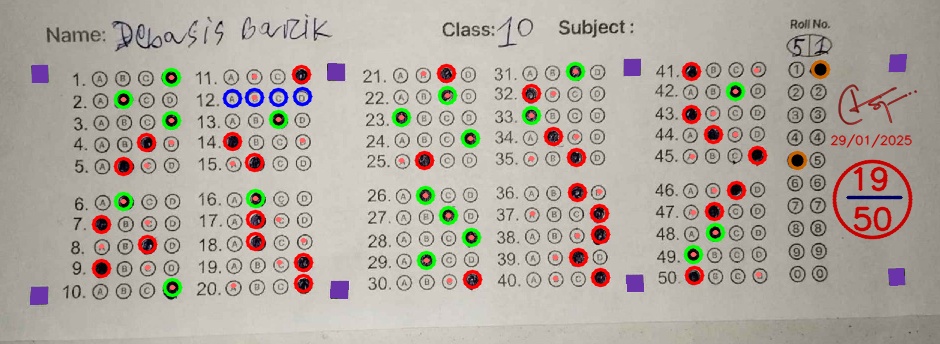 Name: Debasis Barik Class: 10 Subject :
Roll No.
51
1. A B C
2. A C D
3. A B C
4. A B D
5. A C D
6. A C D
7. B C D
8. A B D
9. B C D
10. A B C
11. A B C
12. A B C D
13. A B D
14. B C D
15. A C D
16. A C D
17. A C D
18. A C D
19. A B C
20. A B C
21. A B D
22. A B D
23. B C D
24. A B C
25. A C D
26. A C D
27. A B D
28. A B C
29. A C D
30. A B C
31. A B D
32. B C D
33. B C D
34. A C D
35. A B D
36. A B D
37. A B C
38. A B C
39. A B D
40. A B C
41. B C D
42. A B D
43. B C D
44. A C D
45. A B C
46. A B D
47. A C D
48. A C D
49. B C D
50. B C D
1
2 2
3 3
4 4
5
6 6
7 7
8 8
9 9
0 0
29/01/2025
19
50